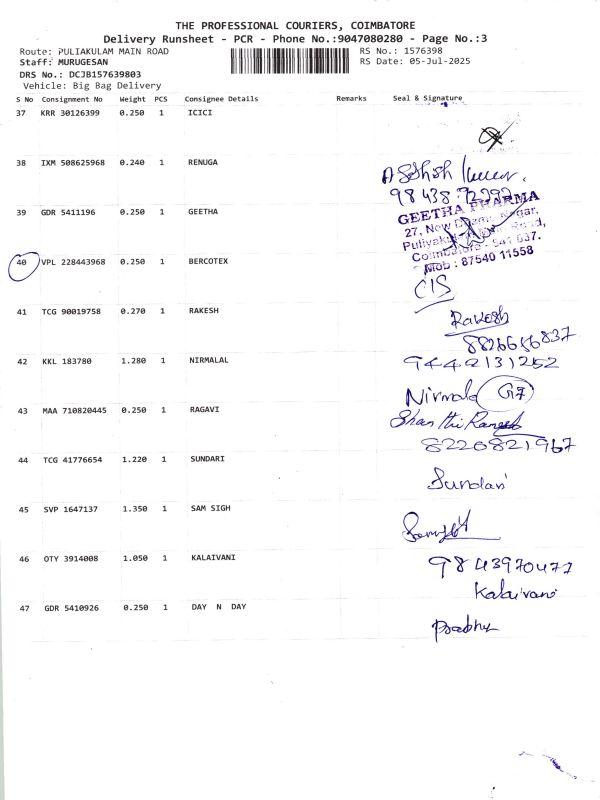 THE PROFESSIONAL COURIERS, COIMBATORE
Delivery Runsheet - PCR - Phone No.:9047080280 - Page No.:3
Route: PULIAKULAM MAIN ROAD RS No.: 1576398
Staff: MURUGESAN RS Date: 05-Jul-2025
DRS No.: DCJB157639803
Vehicle: Big Bag Delivery
S No Consignment No Weight PCS Consignee Details Remarks Seal & Signature
37 KRR 30126399 0.250 1 ICICI
38 IXM 508625968 0.240 1 RENUGA
98438
39 GDR 5411196 0.250 1 GEETHA
GEETHA PHARMA
27, New
Coimbatore - 641 037.
Mob : 87540 11558
40 VPL 228443968 0.250 1 BERCOTEX
CIS
41 TCG 90019758 0.270 1 RAKESH
Rakesh
8826656837
42 KKL 183780 1.280 1 NIRMALAL
9442131252
Nirmala G7
43 MAA 710820445 0.250 1 RAGAVI
Shanthi
8220821967
44 TCG 41776654 1.220 1 SUNDARI
Sundari
45 SVP 1647137 1.350 1 SAM SIGH
46 OTY 3914008 1.050 1 KALAIVANI
9843970477
Kalaivani
47 GDR 5410926 0.250 1 DAY N DAY
Prabhu